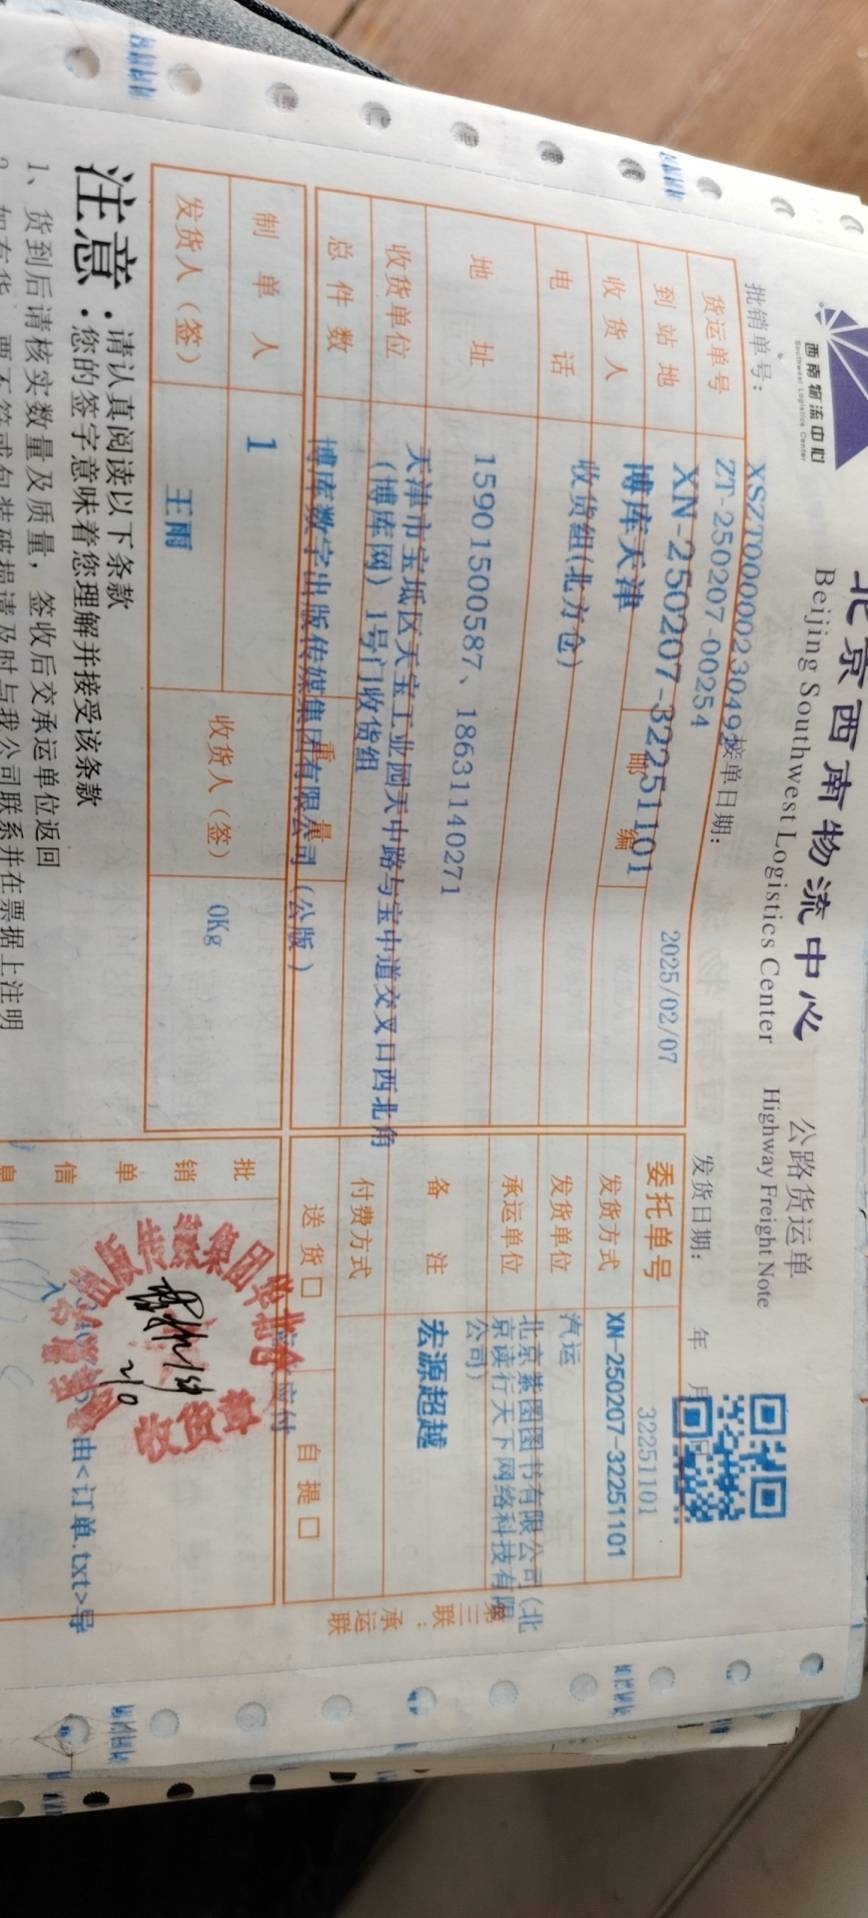 西南物流中心
Southwest Logistics Center
北京西南物流中心 公路货运单
Beijing Southwest Logistics Center Highway Freight Note
批销单号: XSZT0000023049 接单日期: 2025/02/07 发货日期: 年 月
ZT-250207-00254
货运单号 XN-250207-32251101 委托单号 32251101
到站地 博库天津 邮编 发货方式 XN-250207-32251101
收货人 收货组(北方仓) 发货单位 汽运
电话 15901500587、18631140271 承运单位 北京紫图图书有限公司(北
京读行天下网络科技有限
公司)
地址 天津市宝坻区天宝工业园天中路与宝中道交叉口西北角
(博库网)1号门收货组 备注 宏源超越
收货单位 博库数字出版传媒集团有限公司(公版) 付费方式 应付
总件数 1 重量 0Kg 送货□ 自提□
制单人 王雨 收货人(签)
发货人(签)
批销单信息
由<订单.txt>导
出版传媒集团
收货
第三联:承运联
注意:请认真阅读以下条款
您的签字意味着您理解并接受该条款
1、货到后请核实数量及质量，签收后交承运单位返回
2、如有货 要不符或包装破损请及时与我公司联系并在票据上注明